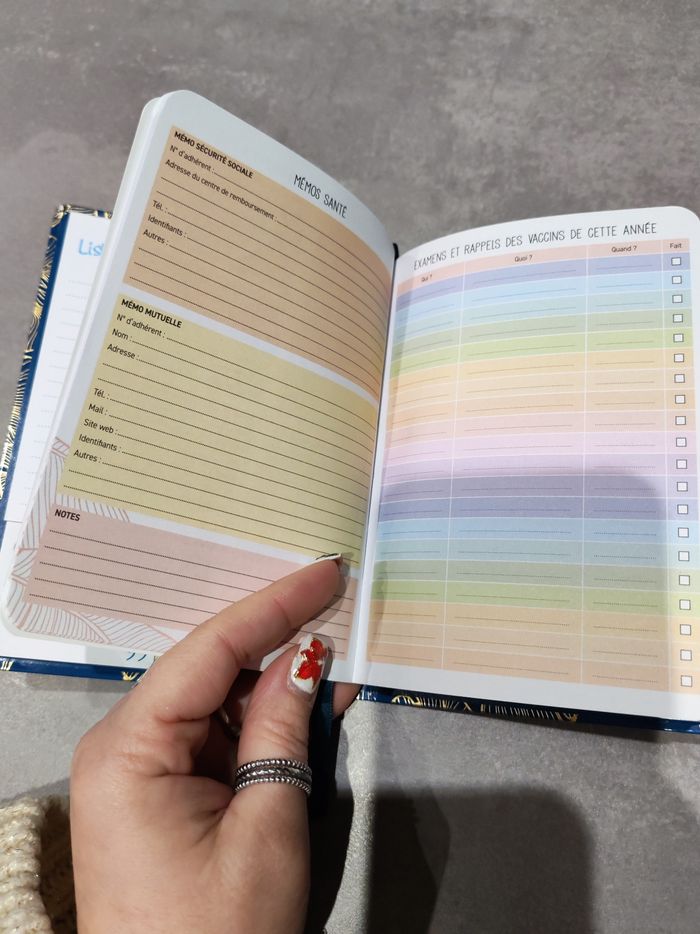 List
MÉMOS SANTÉ
MÉMO SÉCURITÉ SOCIALE
N° d'adhérent :
Adresse du centre de remboursement :
Tél. :
Identifiants :
Autres :
MÉMO MUTUELLE
N° d'adhérent :
Nom :
Adresse :
Tél. :
Mail :
Site web :
Identifiants :
Autres :
NOTES
EXAMENS ET RAPPELS DES VACCINS DE CETTE ANNÉE
Qui ? Quoi ? Quand ? Fait